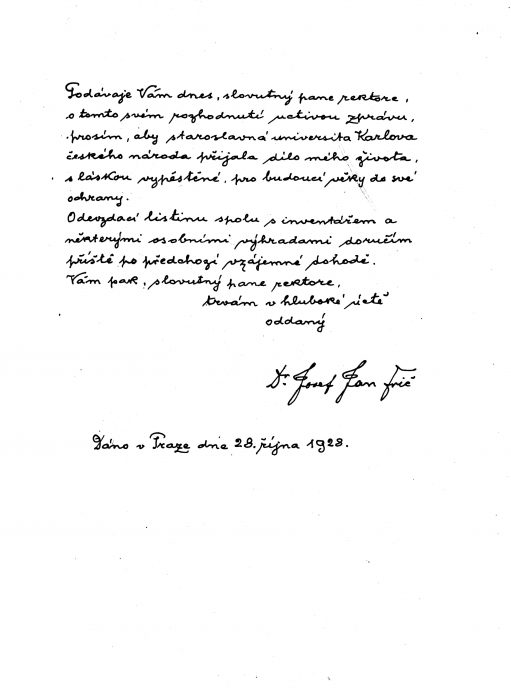 Podávaje Vám dnes, slovutný pane rektore,
o tomto svém rozhodnutí uctivou zprávu,
prosím, aby staroslavná universita Karlova
českého národa přijala dílo mého života,
s láskou vypěstěné, pro budoucí věky do své
ochrany.
Odevzdací listinu spolu s inventářem a
některými osobními výhradami doručím
příště po předchozí vzájemné dohodě.
Vám pak, slovutný pane rektore,
trvám v hluboké úctě
oddaný
Dr. Josef Jan Frič
Dáno v Praze dne 28. října 1928.